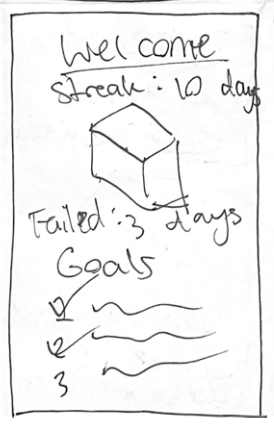 Welcome
Streak: 10 days
Failed: 3 days
Goals
1
2
3